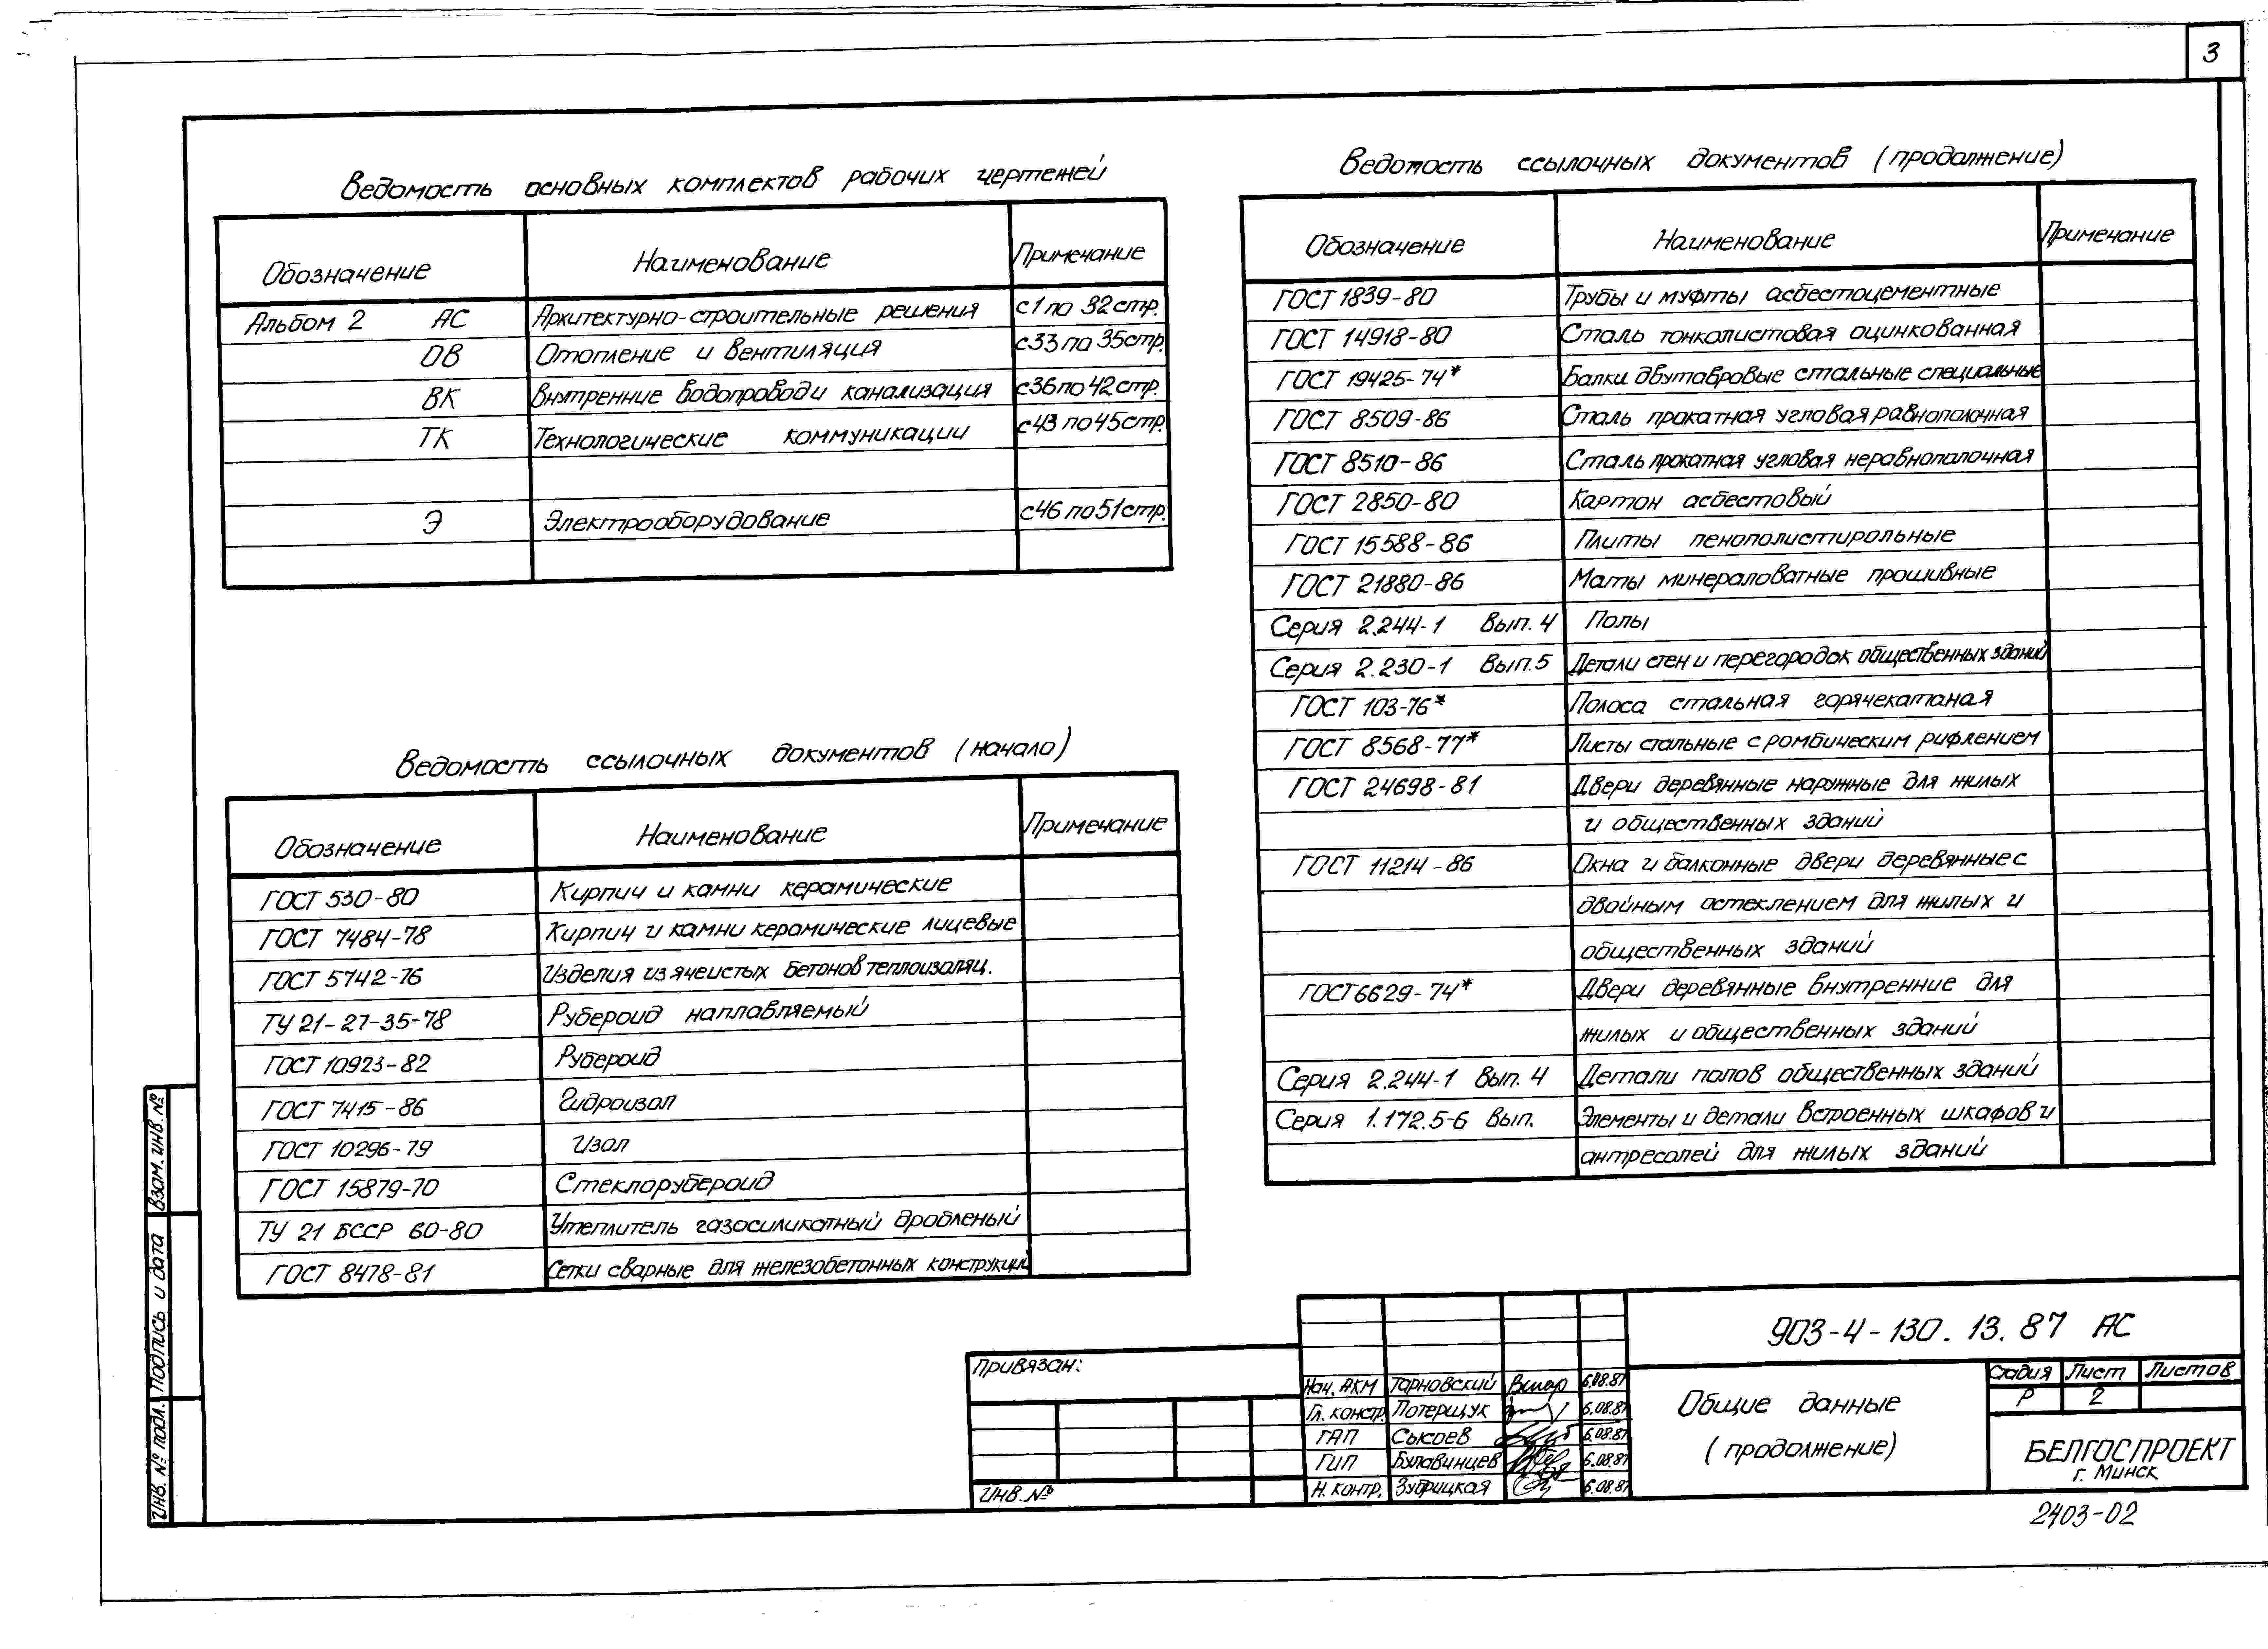 3
Ведомость основных комплектов рабочих чертежей
Обозначение Наименование Примечание
Альбом 2 АС Архитектурно-строительные решения с1 по 32 стр.
ОВ Отопление и вентиляция с33 по 35стр.
ВК Внутренние водопровод и канализация с36 по 42 стр.
ТК Технологические коммуникации с43 по 45стр.
Э Электрооборудование с46 по 51 стр.
Ведомость ссылочных документов (начало)
Обозначение Наименование Примечание
ГОСТ 530-80 Кирпич и камни керамические
ГОСТ 7484-78 Кирпич и камни керамические лицевые
ГОСТ 5742-76 Изделия из ячеистых бетонов теплоизоляц.
ТУ 21-27-35-78 Рубероид наплавляемый
ГОСТ 10923-82 Рубероид
ГОСТ 7415-86 Гидроизол
ГОСТ 10296-79 Изол
ГОСТ 15879-70 Стеклорубероид
ТУ 21 БССР 60-80 Утеплитель газосиликатный дробленый
ГОСТ 8478-81 Сетки сварные для железобетонных конструкций
Ведомость ссылочных документов (продолжение)
Обозначение Наименование Примечание
ГОСТ 1839-80 Трубы и муфты асбестоцементные
ГОСТ 14918-80 Сталь тонколистовая оцинкованная
ГОСТ 19425-74* Балки двутавровые стальные специальные
ГОСТ 8509-86 Сталь прокатная угловая равнополочная
ГОСТ 8510-86 Сталь прокатная угловая неравнополочная
ГОСТ 2850-80 Картон асбестовый
ГОСТ 15588-86 Плиты пенополистирольные
ГОСТ 21880-86 Маты минераловатные прошивные
Серия 2.244-1 Вып. 4 Полы
Серия 2.230-1 Вып. 5 Детали стен и перегородок общественных зданий
ГОСТ 103-76* Полоса стальная горячекатаная
ГОСТ 8568-77* Листы стальные с ромбическим рифлением
ГОСТ 24698-81 Двери деревянные наружные для жилых
и общественных зданий
ГОСТ 11214-86 Окна и балконные двери деревянные с
двойным остеклением для жилых и
общественных зданий
ГОСТ 6629-74* Двери деревянные внутренние для
жилых и общественных зданий
Серия 2.244-1 Вып. 4 Детали полов общественных зданий
Серия 1.172.5-6 Вып. Элементы и детали встроенных шкафов и
антресолей для жилых зданий
Взам. инв. №
Подпись и дата
Инв. № подл.
Привязан:
Инв. №
Нач. АКМ Тарновский 6.08.87
Гл. констр. Потерщук 6.08.87
ГАП Сысоев 6.08.87
ГИП Булавинцев 6.08.87
Н. контр. Зубрицкая 6.08.87
903-4-130. 13. 87 АС
Общие данные
(продолжение)
Стадия Лист Листов
Р 2
БЕЛГОСПРОЕКТ
г. Минск
2403-02